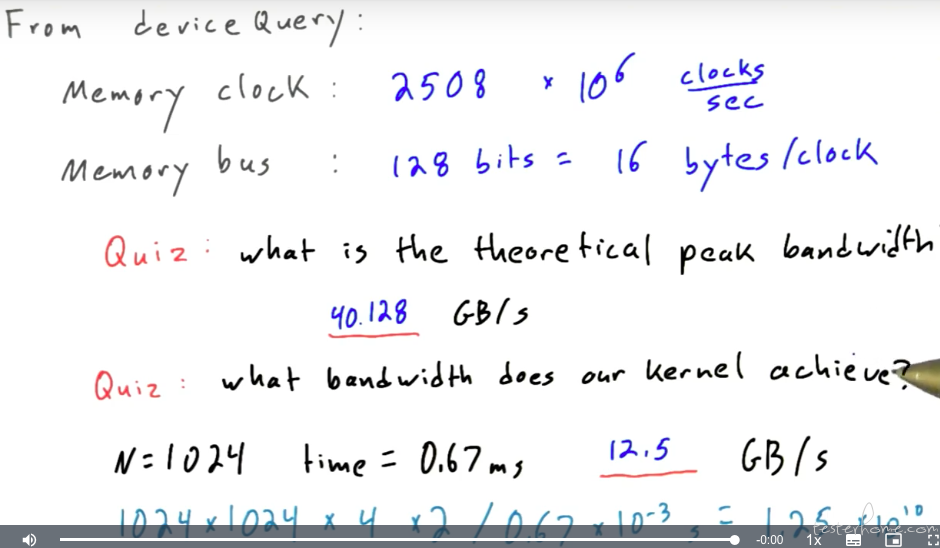 From deviceQuery:
Memory clock : 2508 × 10⁶ clocks/sec
Memory bus : 128 bits = 16 bytes/clock
Quiz: what is the theoretical peak bandwidth
40.128 GB/s
Quiz: what bandwidth does our kernel achieve?
N=1024 time = 0.67ms 12.5 GB/s
1024×1024 × 4 × 2 / 0.67 × 10⁻³ = 1.25 × 10¹⁰
testerhome.com
-0:00 1x